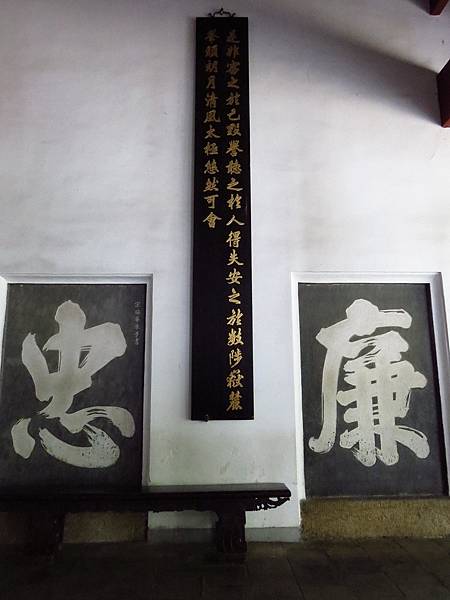 廉
是非審之於己毀譽聽之於人得失安之於數陟嶽麓
峯頭朗月清風太極悠然可會
忠